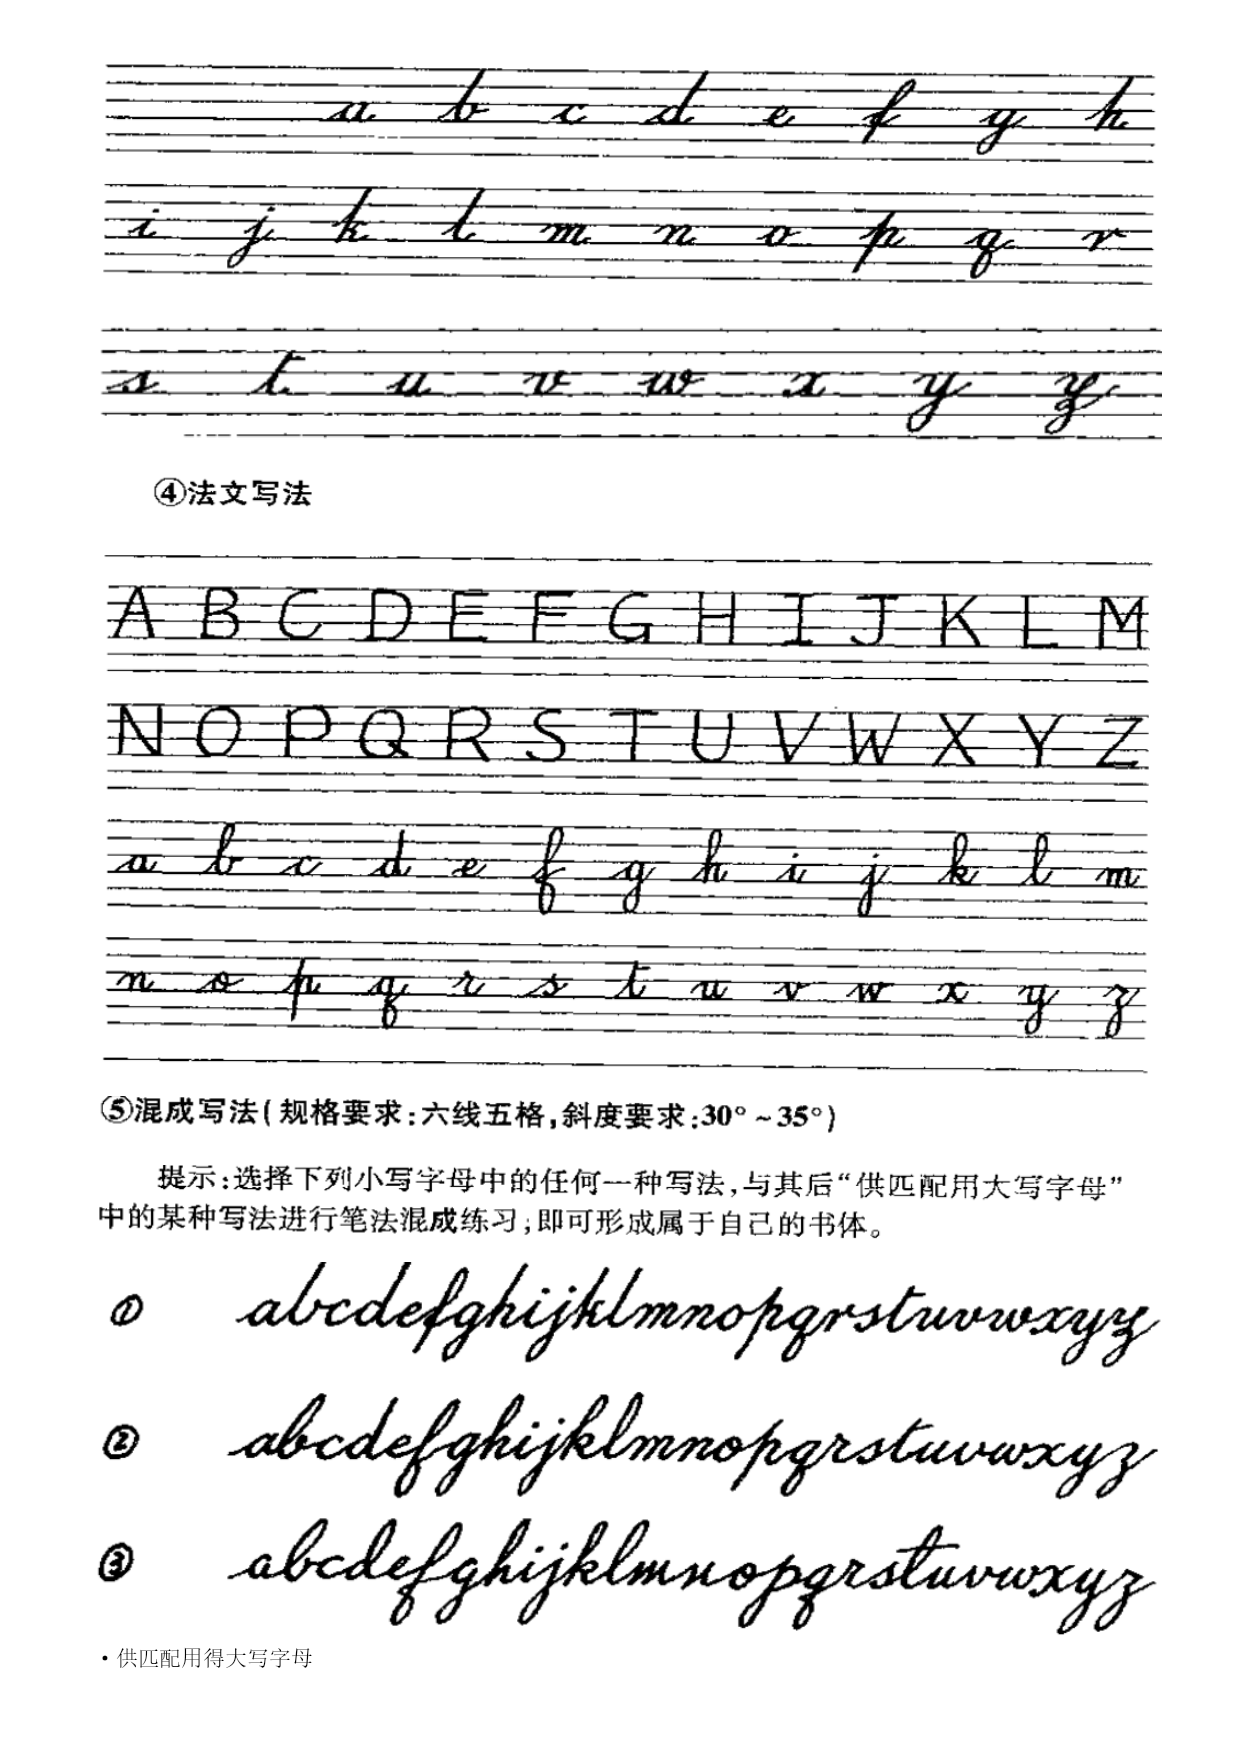 a b c d e f g h
i j k l m n o p q r
s t u v w x y z
④法文写法
A B C D E F G H I J K L M
N O P Q R S T U V W X Y Z
a b c d e f g h i j k l m
n o p q r s t u v w x y z
⑤混成写法(规格要求:六线五格,斜度要求:30°~35°)
提示:选择下列小写字母中的任何一种写法,与其后“供匹配用大写字母”
中的某种写法进行笔法混成练习;即可形成属于自己的书体。
① abcdefghijklmnopqrstuvwxyz
② abcdefghijklmnopqrstuvwxyz
③ abcdefghijklmnopqrstuvwxyz
• 供匹配用得大写字母